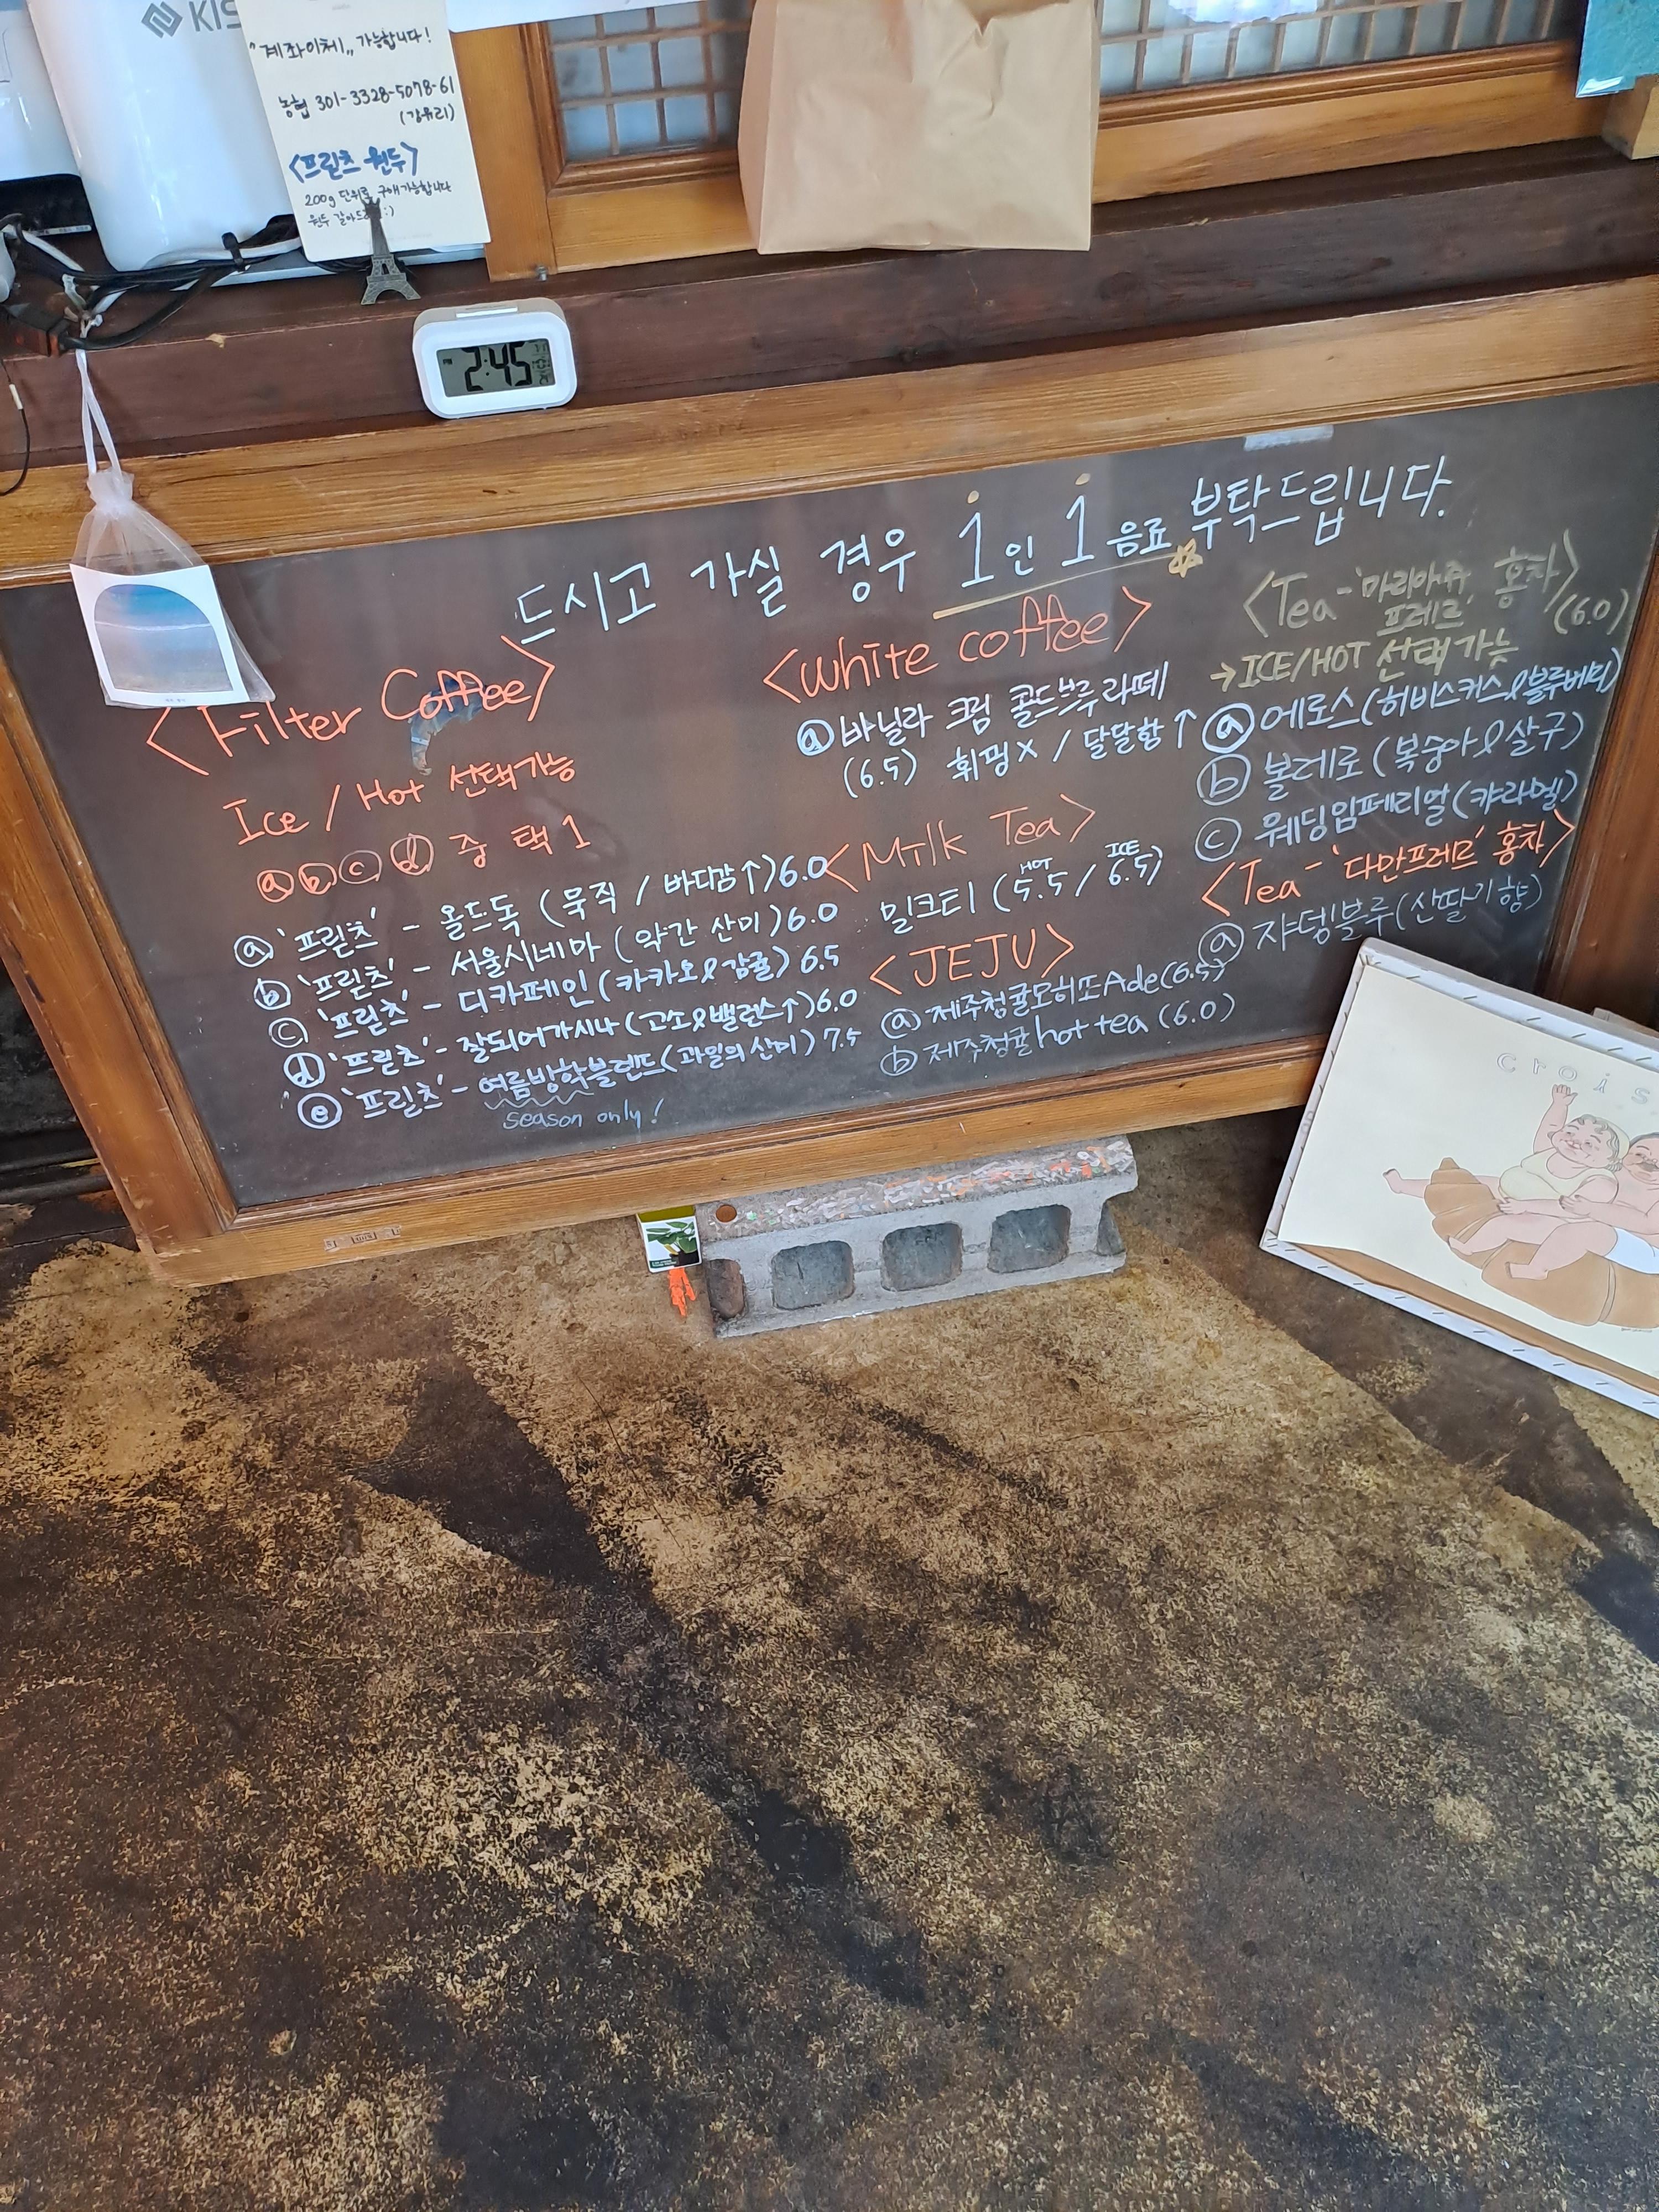 KIS
"계좌이체,, 가능합니다!
농협 301-3328-5078-61
(강유리)
<프릳츠 원두>
200g 단위로 구매가능합니다
원두 갈아드 :)
2:45
드시고 가실 경우 1인 1음료 부탁드립니다.
<Filter Coffee>
Ice / Hot 선택가능
ⓐⓑⓒⓓ 중 택 1
ⓐ '프릳츠' - 올드독 (묵직 / 바디감↑) 6.0
ⓑ '프릳츠' - 서울시네마 (약간 산미) 6.0
ⓒ '프릳츠' - 디카페인 (카카오&감귤) 6.5
ⓓ '프릳츠' - 잘되어가시나 (고소&밸런스↑) 6.0
ⓔ '프릳츠' - 여름방학블렌드 (과일의 산미) 7.5
season only!
<White coffee>
ⓐ 바닐라 크림 콜드브루 라떼
(6.5) 휘핑X / 달달함↑
<Milk Tea>
밀크티 (HOT 5.5 / ICE 6.5)
<JEJU>
ⓐ 제주청귤모히또Ade(6.5)
ⓑ 제주청귤hot tea (6.0)
<Tea - '마리아쥬 프레르' 홍차>
(6.0)
→ICE/HOT 선택가능
ⓐ 에로스 (히비스커스&블루베리)
ⓑ 볼레로 (복숭아&살구)
ⓒ 웨딩임페리얼 (캬라멜)
<Tea - '다만프레르' 홍차>
ⓐ 쟈뎅블루 (산딸기향)
crois